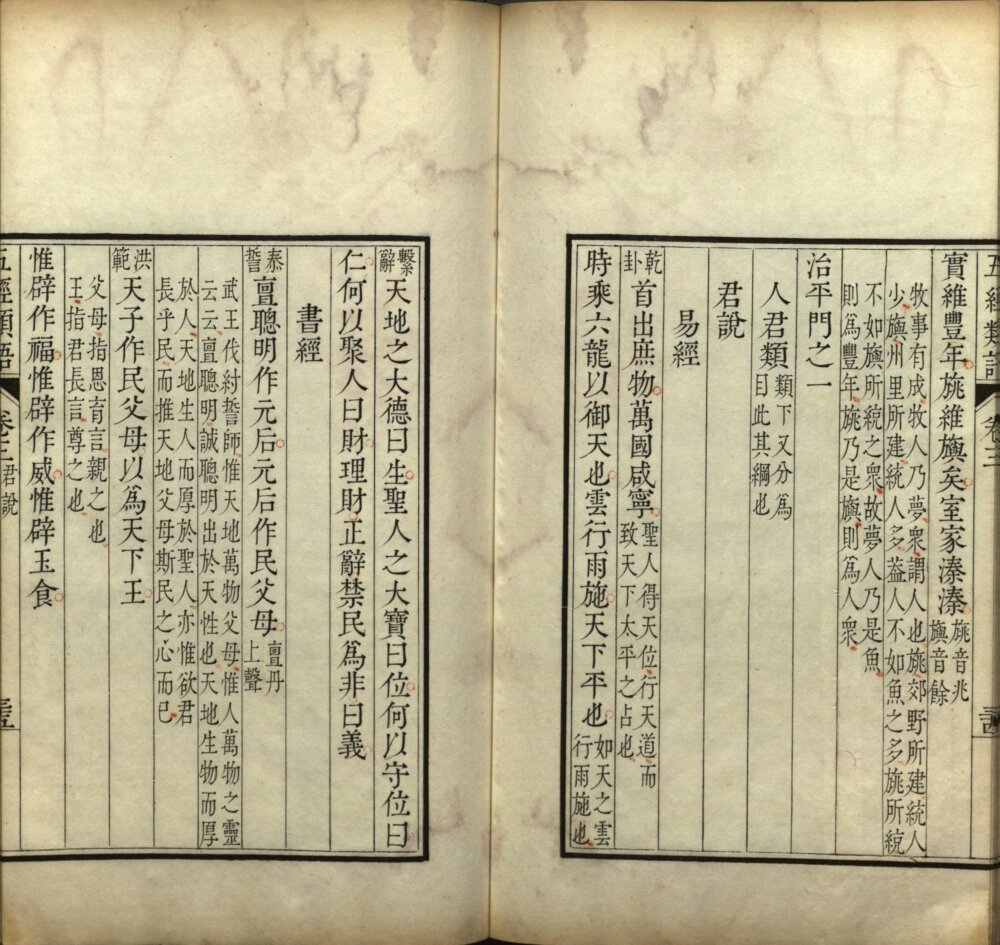 五經類語 卷三 三四
實維豐年旐維旟矣室家溱溱旐音兆旟音餘
牧事有成牧人乃夢衆謂人也旐郊野所建統人
少旟州里所建統人多葢人不如魚之多旐所統
不如旟所統之衆故夢人乃是魚
則爲豐年旐乃是旟則爲人衆
治平門之一
人君類類下又分爲目此其綱也
君說
易經
乾卦首出庶物萬國咸寧聖人得天位行天道而致天下太平之占也
時乘六龍以御天也雲行雨施天下平也如天之雲行雨施也
繫辭天地之大德曰生聖人之大寶曰位何以守位曰
仁何以聚人曰財理財正辭禁民爲非曰義
書經
泰誓亶聰明作元后元后作民父母亶丹上聲
武王伐紂誓師惟天地萬物父母惟人萬物之靈
云云亶聰明誠聰明出於天性也天地生物而厚
於人天地生人而厚於聖人亦惟欲君
長乎民而推天地父母斯民之心而已
洪範天子作民父母以爲天下王
父母指恩育言親之也
王指君長言尊之也
惟辟作福惟辟作威惟辟玉食
五經類語 卷三 君說 三五